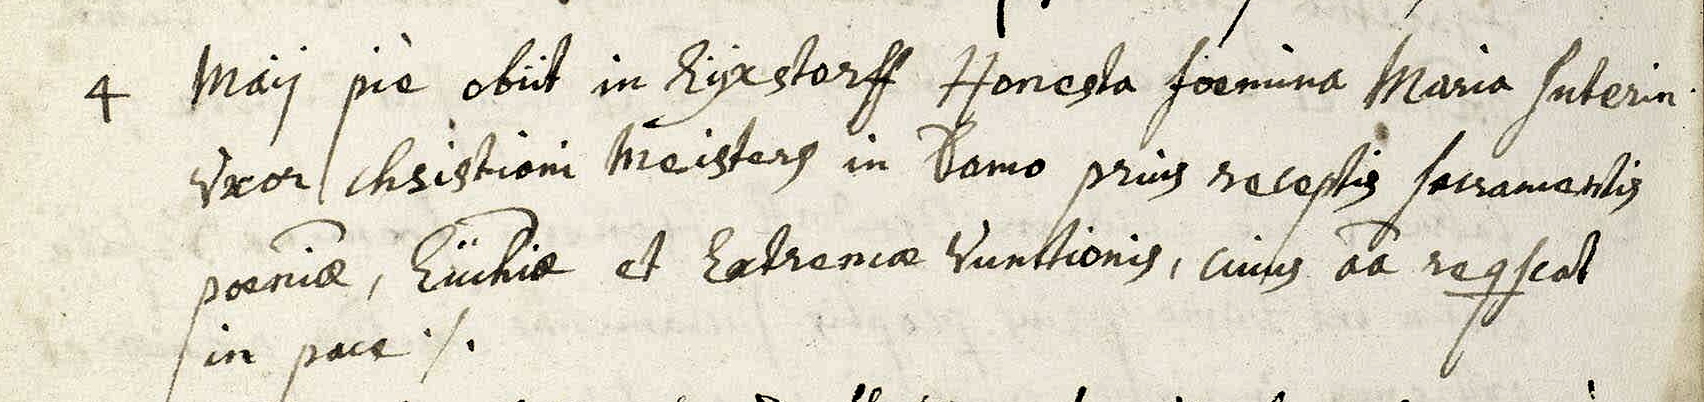 4 Maij piè obiit in Eyxstorff Honesta foemina Maria Suterin
Vxor christiani Meisters in Domo prius receptis sacramentis
poeniæ, Eüchiæ et Extremæ Vunctionis, cuius aā reqscat
in pace ·/.